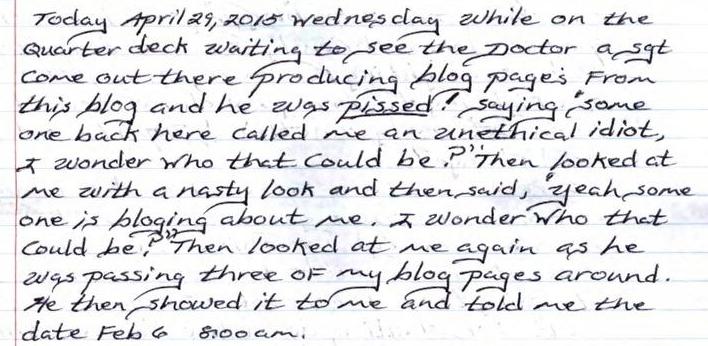 Today April 29, 2015 Wednesday while on the
Quarter deck waiting to see the Doctor a sgt
come out there producing blog pages From
this blog and he was pissed! saying "some
one back here called me an unethical idiot,
I wonder who that could be?" Then looked at
me with a nasty look and then said, "yeah some
one is bloging about me. I wonder who that
could be?" Then looked at me again as he
was passing three of my blog pages around.
He then showed it to me and told me the
date Feb 6 8:00 am.